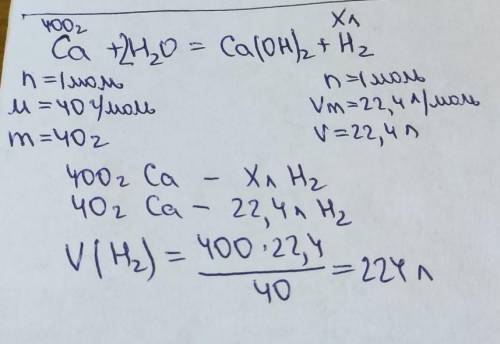 400г Xл
Ca + 2H₂O = Ca(OH)₂ + H₂
n = 1 моль n = 1 моль
M = 40 г/моль Vm = 22,4 л/моль
m = 40 г V = 22,4 л
400г Ca – Xл H₂
40г Ca – 22,4 л H₂
V(H₂) = 400 · 22,4 / 40 = 224 л